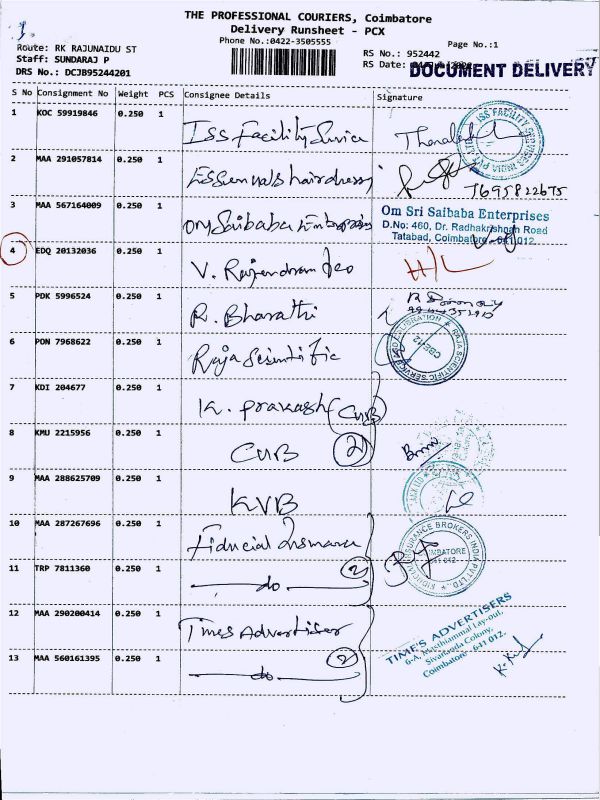 THE PROFESSIONAL COURIERS, Coimbatore
Delivery Runsheet - PCX
Phone No.:0422-3505555
Route: RK RAJUNAIDU ST
Staff: SUNDARAJ P
DRS No.: DCJB95244201
Page No.:1
RS No.: 952442
RS Date:
DOCUMENT DELIVERY
S No Consignment No Weight PCS Consignee Details Signature
1 KOC 59919846 0.250 1 Iss Facility Service
ISS FACILITY SERVICES INDIA PVT. LTD
2 MAA 291057814 0.250 1 Essenuals hairdressy
7695822675
3 MAA 567164009 0.250 1 Om Saibaba Enterprises
Om Sri Saibaba Enterprises
D.No: 460, Dr. Radhakrishnan Road
Tatabad, Coimbatore - 641 012.
4 EDQ 20132036 0.250 1 V. Rajendran deo H/L
5 PDK 5996524 0.250 1 R. Bharathi
6 PON 7968622 0.250 1 Raja Scientific
CALIBRATION RAJA SCIENTIFIC SERVICES
CBE-12
7 KDI 204677 0.250 1 K. prakash (CUB)
8 KMU 2215956 0.250 1 CUB 2
9 MAA 288625709 0.250 1 KVB
10 MAA 287267696 0.250 1 Fiducial Insurance
INSURANCE BROKERS INDIA PVT LTD.,
COIMBATORE
641 012
11 TRP 7811360 0.250 1 do 2
12 MAA 290200414 0.250 1 Times Advertiser
TIME'S ADVERTISERS
6-A, Masthiammal Lay-out,
Sivananda Colony,
Coimbatore - 641 012.
13 MAA 560161395 0.250 1 do 2